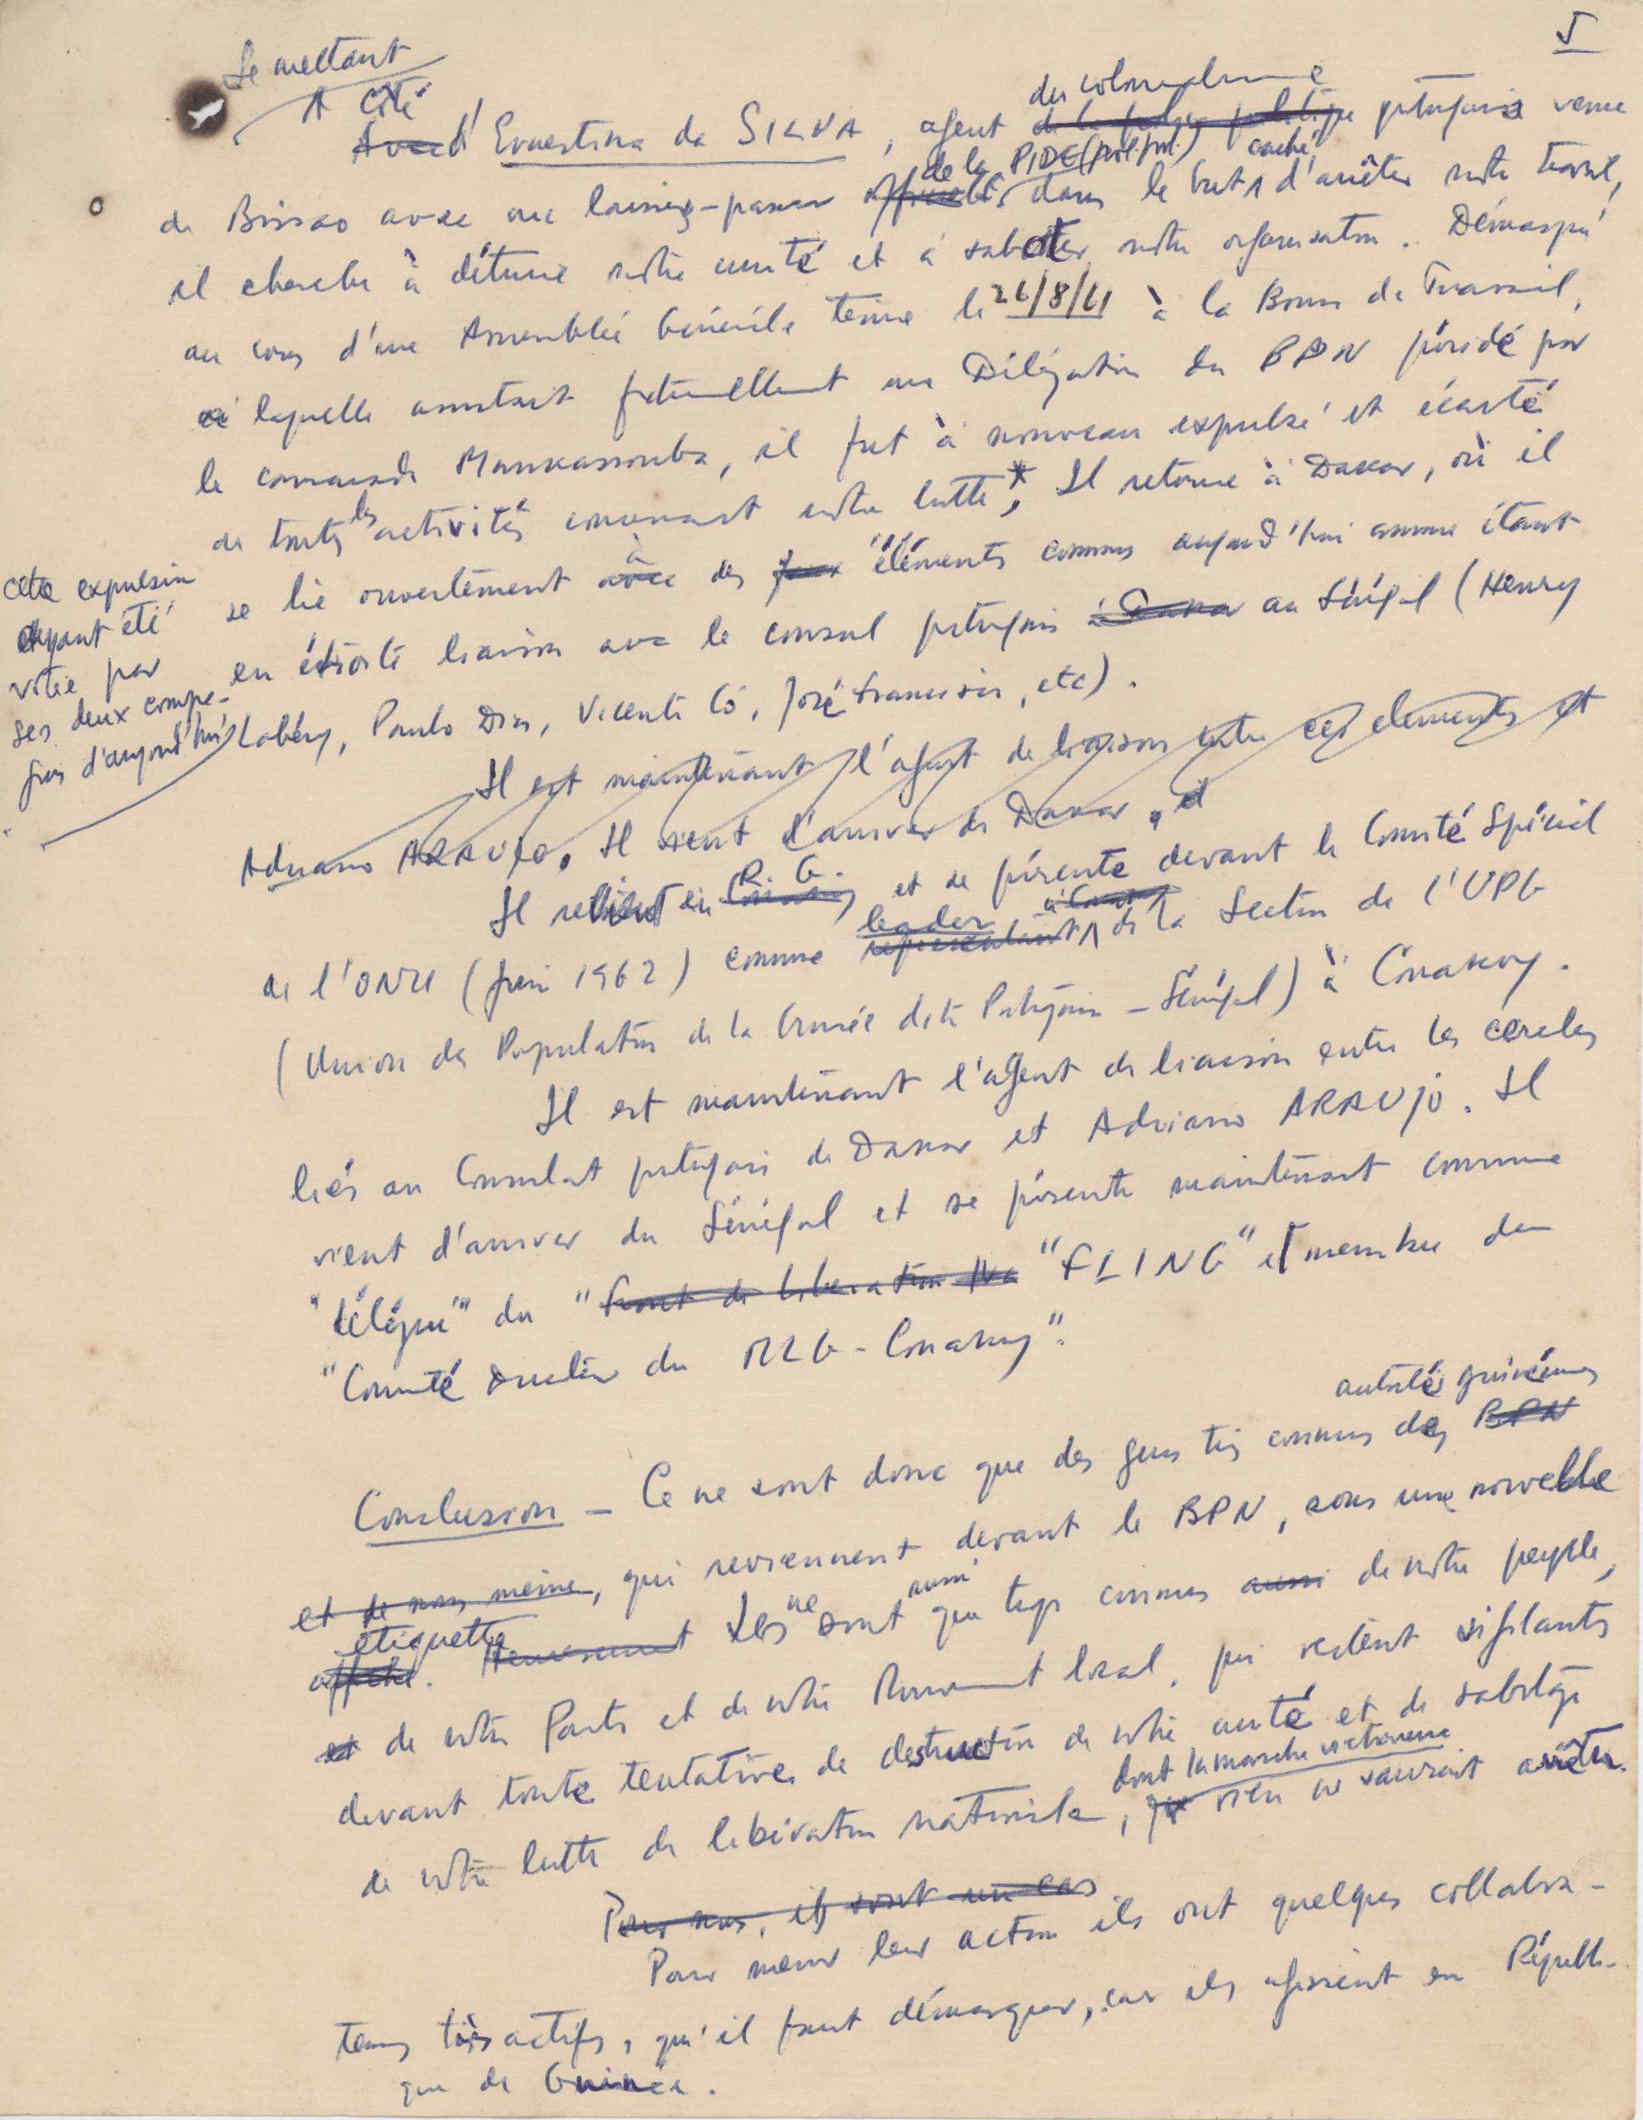 5
Se mettant
à côté
du colonialisme
Avec d'Ernestina da SILVA, agent de la police politique portugais venue
de la PIDE (pol. pol.) caché
de Bissao avec un laissez-passer officiel, dans le but d'arrêter notre travail,
il cherche à détruire notre unité et à saboter notre organisation. Démasqué
au cours d'une Assemblée Générale tenue le 26/8/61 à la Bourse de Travail,
à laquelle assistait fraternellement une Délégation du BPN présidé par
le camarade Mankassouba, il fut à nouveau expulsé et écarté
de toutes les activités concernant notre lutte*, Il retourne à Dakar, où il
se lie ouvertement avec à des faux éléments connus aujourd'hui comme étant
en étroite liaison avec le consul portugais à Dakar au Sénégal (Henry
Labéry, Paulo Dias, Vicente Có, José Francisco, etc).
cette expulsion
ayant été
votée par
ses deux compa-
gnons d'aujourd'hui
Il est maintenant l'agent de liaison entre ces elements et
Adriano ARAUJO. Il vient d'arriver de Dakar, et
Il revient en R. G. et se présente devant le Comité Spécial
de l'ONU (Juin 1962) comme leader représentant à Conakry de la Section de l'UPG
(Union des Populations de la Guinée dite Portugaise - Sénégal) à Conakry.
Il est maintenant l'agent de liaison entre les cercles
liés au Consulat portugais de Dakar et Adriano ARAUJO. Il
vient d'arriver du Sénégal et se présente maintenant comme
"délégué" du "Front de Libération Na "FLING" et membre du
"Comité Directeur du MLG-Conakry".
autorités guinéennes
Conclusion - Ce ne sont donc que des gens très connus des BPN
et de nous même, qui reviennent devant le BPN, sous une nouvelle
étiquette
affiche. Heureusement Ils ne sont aussi que trop connus aussi de notre peuple,
et de notre Parti et de notre Mouvement local, qui restent vigilants
devant toute tentative de destruction de notre unité et de sabotage
dont la marche victorieuse
de notre lutte de libération nationale, que rien ne saurait arrêter.
Pour nous, ils sont un cas
Pour mener leur action ils ont quelques collabora-
teurs très actifs, qu'il faut démasquer, car ils agissent en Républi-
que de Guinée.